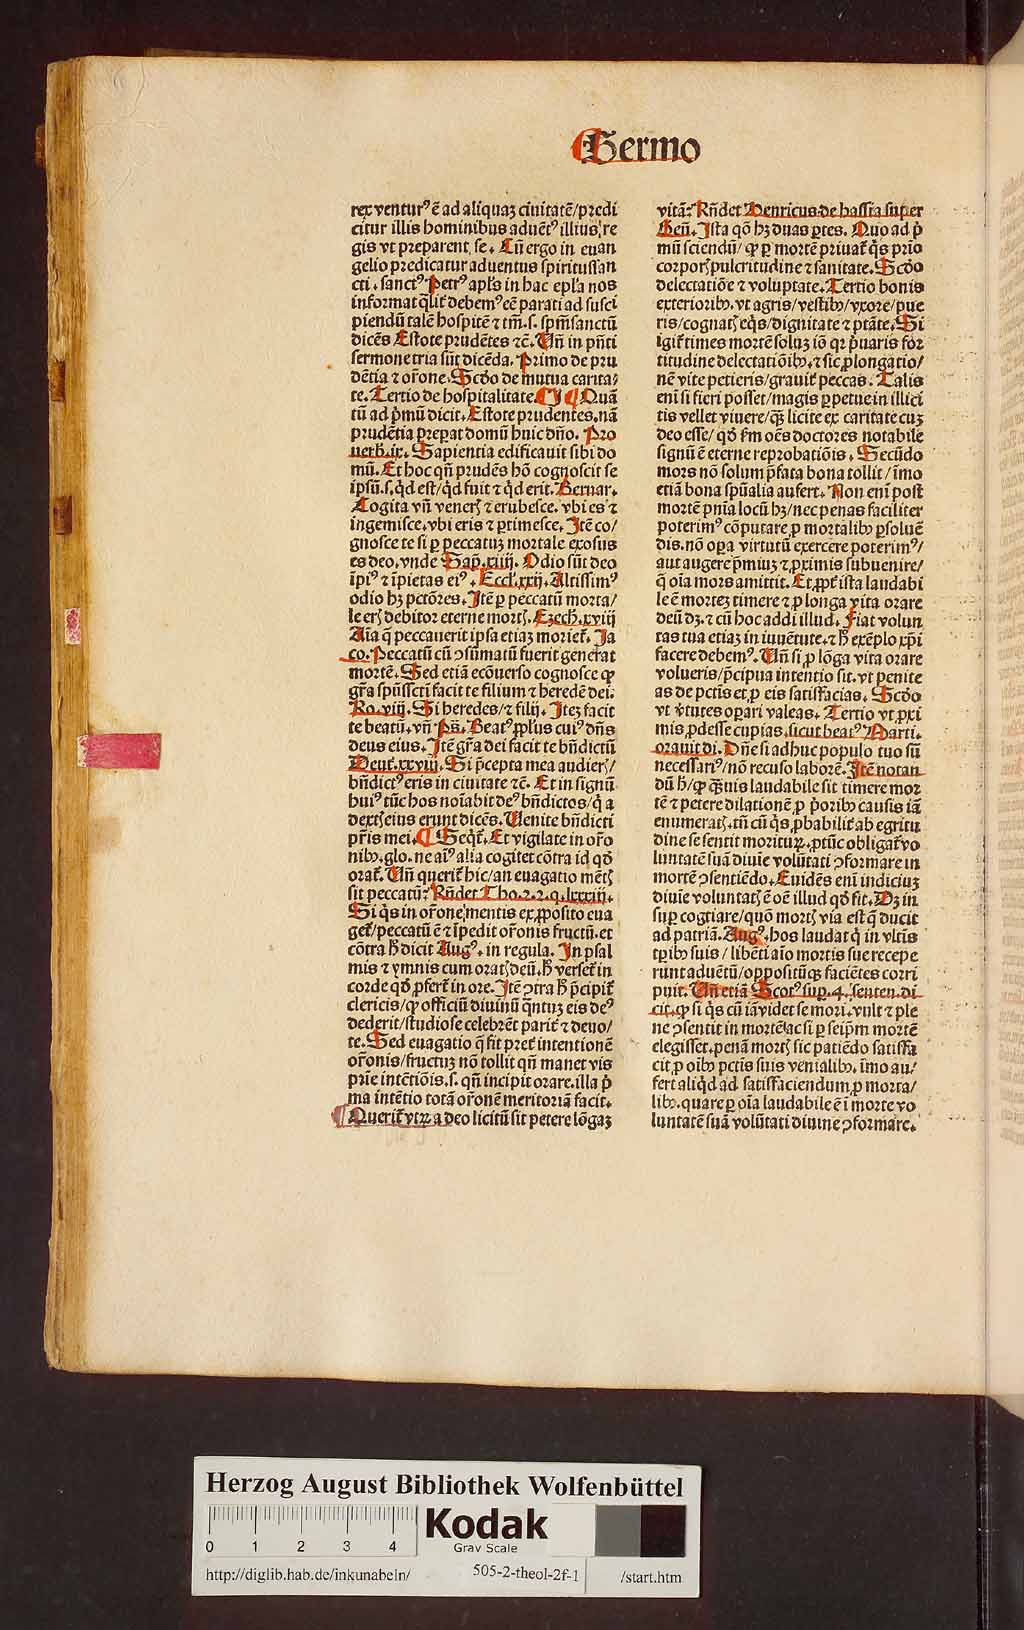 Sermo
rex venturꝰ ē ad aliquaꝫ ciuitatē/predi
citur illis hominibus aduētꝰ illius/re
gis vt preparent se. Cū ergo in euan
gelio predicatur aduentus spiritussan
cti. sanctꝰ Petrꝰ apls in hac epla nos
informat qlit debemꝰ eē parati ad susci
piendū talē hospitē ⁊ tm̄.s. spm̄sanctū
dicēs Estote prudētes ⁊c̄. Un̄ in pn̄ti
sermone tria sūt dicēda. Primo de pru
dētia ⁊ or̄one. Scd̄o de mutua carita/
te. Tertio de hospitalitate. ¶ J ¶ Quā
tū ad pͥmū dicit. Estote prudentes. nā
prudētia prepat domū huic dn̄o. Pro
uerb̄.ix. Sapientia edificauit sibi do
mū. Et hoc qn̄ prudēs hō cognoscit se
ip̄sū.s. qͥd est/qͥd fuit ⁊ qͥd erit. Bernar.
Cogita vn̄ veneris ⁊ erubesce. vbi es ⁊
ingemisce. vbi eris ⁊ ꝑtimesce. Itē co/
gnosce te si ꝑ peccatuꝫ mortale exosus
es deo. vnde Sap̄.xiiij. Odio sūt deo
īpiꝰ ⁊ īpietas eiꝰ. Eccl̄.xxij. Altissimꝰ
odio hꝫ pctōres. Itē ꝑ peccatū morta/
le eris debitor eterne mortis. Ezech̄.xviij
Aīa q̄ peccauerit ipsa etiaꝫ moriet̄. Ja
co. Peccatū cū ꝯsūmatū fuerit generat
mortē. Sed etiā ecōuerso cognosce ꝙ
gr̄a spūssctī facit te filium ⁊ heredē dei.
Ro.viij. Si heredes/⁊ filij. Iteꝫ facit
te beatū. vn̄ Ps̄. Beatꝰ pplus cuiꝰ dn̄s
deus eius. Itē gr̄a dei facit te bn̄dictū
Deut̄.xxviij. Si p̄cepta mea audieris/
bn̄dictꝰ eris in ciuitate ⁊c̄. Et in signū
huiꝰ tūc hos noīabit deꝰ bn̄dictos/qͥ a
dextris eius erunt dicēs. Uenite bn̄dicti
pr̄is mei. ¶ Seqt̄. Et vigilate in or̄o
nibꝰ. glo. ne aīꝰ alia cogitet cōtra id qd̄
orat̄. Un̄ querit̄ hic/an euagatio mētis
sit peccatū? Rn̄det Tho.2.2.q.lxxxiij.
Si qͥs in or̄one/mentis ex ꝓposito eua
get̄/peccatū ē ⁊ īpedit or̄onis fructū. et
cōtra h̄ dicit Augꝰ. in regula. In psal
mis ⁊ ymnis cum oratis deū. h̄ verset̄ in
corde qd̄ ꝓfert̄ in ore. Itē ꝯtra h̄ p̄cipit̄
clericis/ꝙ officiū diuinū qͣntuꝫ eis deꝰ
dederit/studiose celebrēt parit̄ ⁊ deuo/
te. Sed euagatio q̄ fit pret̄ intentionē
or̄onis/fructuꝫ nō tollit qn̄ manet vis
prīe intētiōis.s. qn̄ incipit orare. illa pͥ
ma intētio totā or̄onē meritoriā facit.
¶ Querit̄ vtrꝫ a deo licitū sit petere lōgaꝫ
vitā? Rn̄det Henricus de hassia super
Gen̄. Ista qō hꝫ duas ꝑtes. Quo ad pͥ
mū sciendū/ꝙ ꝑ mortē priuat̄ qͥs prīo
corporis pulcritudine ⁊ sanitate. Scd̄o
delectatiōe ⁊ voluptate. Tertio bonis
exterioribꝰ. vt agris/vestibꝰ/vxore/pue
ris/cognatis eqͥs/dignitate ⁊ ptāte. Si
igit̄ times mortē soluꝫ iō qꝛ pͥuaris for
titudine delectatiōibꝰ. ⁊ sic ꝓlongatio/
nē vite petieris/grauit̄ peccas. Talis
eni si fieri posset/magis ꝑpetue in illici
tis vellet viuere/qͣꝫ licite ex caritate cuꝫ
deo esse/qd̄ fm̄ oēs doctores notabile
signū ē eterne reprobatiōis. Secūdo
mors nō solum p̄fata bona tollit/īmo
etiā bona spūalia aufert. Non enī post
mortē pnīa locū hꝫ/nec penas faciliter
poterimꝰ cōputare ꝓ mortalibꝰ ꝑsoluē
dis. nō oꝑa virtutū exercere poterimꝰ/
aut augere p̄miuꝫ ⁊ ꝓximis subuenire/
q̄ oīa mors amittit. Et ꝓpt̄ ista laudabi
le ē morteꝫ timere ⁊ ꝓ longa vita orare
deū dꝫ. ⁊ cū hoc addi illud. Fiat volun
tas tua etiaꝫ in iuuētute. ⁊ h̄ exēplo xp̄i
facere debemꝰ. Un̄ si ꝓ lōga vita orare
volueris/p̄cipua intentio sit. vt penite
as de pctīs et ꝓ eis satisfacias. Scd̄o
vt vͥtutes oꝑari valeas. Tertio vt ꝓxi
mis ꝓdesse cupias. sicut beatꝰ Marti.
orauit di. Dn̄e si adhuc populo tuo sū
necessariꝰ/nō recuso laborē. Itē notan
dū h̄/ꝙ qͣꝫuis laudabile sit timere mor
tē ⁊ petere dilationē ꝓ pͥoribꝰ causis iā
enumeratis. tn̄ cū qͥs ꝓbabilit̄ ab egritu
dine se sentit moritur. ꝓtūc obligat̄ vo
luntatē suā diuīe volūtati ꝯformare in
mortē ꝯsentiēdo. Euidēs enī indiciuꝫ
diuīe voluntatis ē oē illud qd̄ fit. Dꝫ in
suꝑ cogitare/quō mortis via est q̄ ducit
ad patriā. Augꝰ. hos laudat qͥ in vltīs
tꝑibꝰ suis/libēti aīo mortis sue recepe
runt aduētū/oppositūqꝫ faciētes corri
puit. Un̄ etiā Scotꝰ suꝑ.4. senten. di
cit. ꝙ si qͥs cū iā videt se mori. vult ⁊ ple
ne ꝯsentit in mortē/ac si ꝑ seipm̄ mortē
elegisset. penā mortis sic patiēdo satisfa
cit ꝓ oībꝰ pctīs suis venialibꝰ. īmo au/
fert aliqͥd ad satisfaciendum ꝓ morta/
libꝰ. quare ꝑ oīa laudabile ē ī morte vo
luntatē suā volūtati diuine ꝯformare.
Herzog August Bibliothek Wolfenbüttel
0 1 2 3 4
Kodak
Gray Scale
http://diglib.hab.de/inkunabeln/ 505-2-theol-2f-1 /start.htm